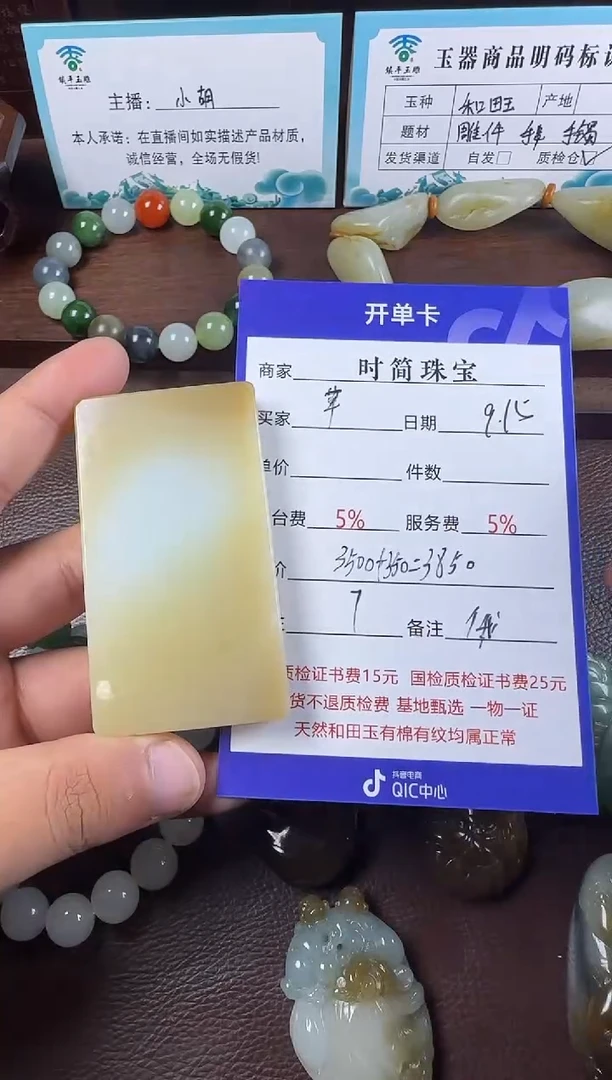 镇平玉雕
主播: 小胡
本人承诺: 在直播间如实描述产品材质,
诚信经营, 全场无假货!
镇平玉雕
玉器商品明码标识
玉种 和田玉 产地
题材 雕件 手镯
发货渠道 自发□ 质检仓☑
开单卡
商家 时简珠宝
买家 苹 日期 9.15
单价 件数
台费 5% 服务费 5%
价 3500+350=3850
7 备注
质检证书费15元 国检质检证书费25元
货不退质检费 基地甄选 一物一证
天然和田玉有棉有纹均属正常
抖音电商
QIC中心